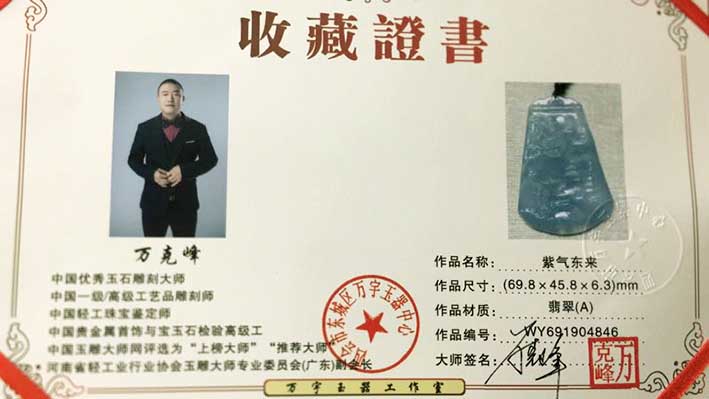 收藏證書
万克峰
中国优秀玉石雕刻大师
中国一级/高级工艺品雕刻师
中国轻工珠宝鉴定师
中国贵金属首饰与宝玉石检验高级工
中国玉雕大师网评选为“上榜大师” “推荐大师”
河南省轻工业行业协会玉雕大师专业委员会(广东)副会长
四会市东城区万宇玉器中心
作品名称: 紫气东来
作品尺寸: (69.8×45.8×6.3)mm
作品材质: 翡翠(A)
作品编号: WY691904846
大师签名:
万克峰
万宇玉器工作室